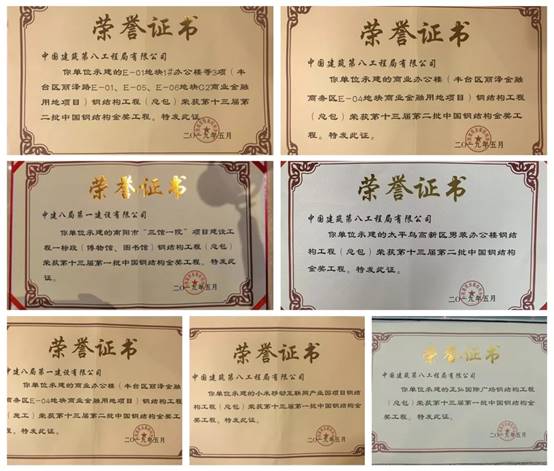 荣誉证书
中国建筑第八工程局有限公司
你单位承建的E-01地块1#办公楼等3项（丰
台区丽泽路E-01、E-05、E-06地块C2商业金融
用地项目）钢结构工程（总包）荣获第十三届第
二批中国钢结构金奖工程。特发此证。
二〇一九年五月
荣誉证书
中国建筑第八工程局有限公司
你单位承建的商业办公楼（丰台区丽泽金融
商务区E-04地块商业金融用地项目）钢结构工程
（总包）荣获第十三届第二批中国钢结构金奖工
程。特发此证。
二〇一九年五月
荣誉证书
中建八局第一建设有限公司
你单位承建的南阳市“三馆一院”项目建设工
程一标段（博物馆、图书馆）钢结构工程（总包）
荣获第十三届第一批中国钢结构金奖工程。特发此
证。
二〇一九年五月
荣誉证书
中国建筑第八工程局有限公司
你单位承建的太平鸟高新区男装办公楼钢结
构工程（总包）荣获第十三届第二批中国钢结构金
奖工程。特发此证。
二〇一九年五月
荣誉证书
中建八局第一建设有限公司
你单位承建的商业办公楼（丰台区丽泽金融
商务区E-04地块商业金融用地项目）钢结构工程
（施工）荣获第十三届第二批中国钢结构金奖工
程。特发此证。
二〇一九年五月
荣誉证书
中国建筑第八工程局有限公司
你单位承建的小米移动互联网产业园项目钢结
构工程（总包）荣获第十三届第一批中国钢结构金奖
工程。特发此证。
二〇一九年五月
荣誉证书
中国建筑第八工程局有限公司
你单位承建的正弘国际广场钢结构工程（总
包）荣获第十三届第一批中国钢结构金奖工程。
特发此证。
二〇一九年五月